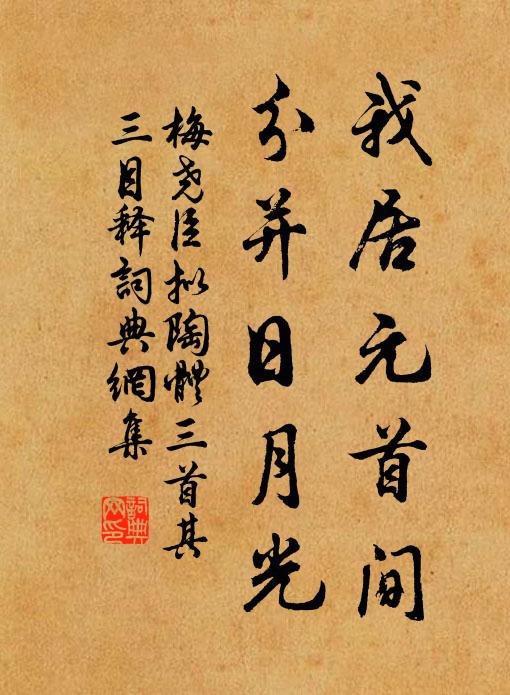 我居元首间
分并日月光
梅尧臣拟陶體三首其
三目释詞典網集
詞典網印